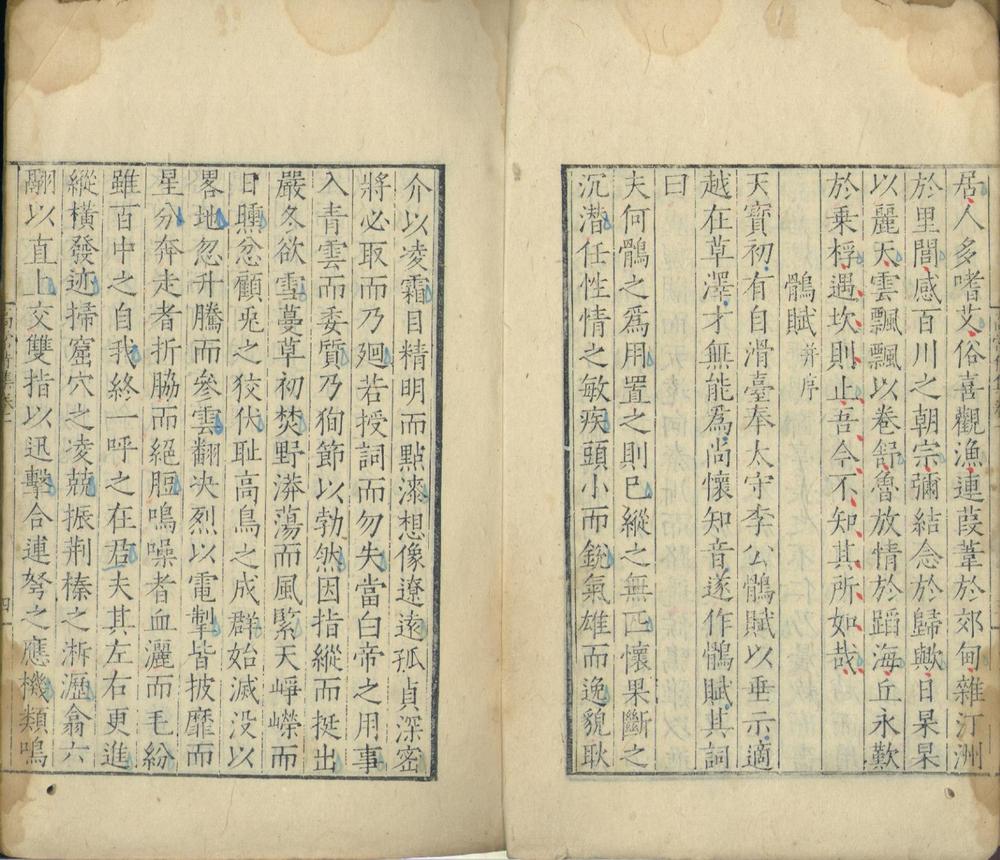 居人多嗜艾俗喜觀漁連葭葦於郊甸雜汀洲
於里閭感百川之朝宗彌結念於歸歟日杲杲
以麗天雲飄飄以卷舒魯放情於蹈海丘永歎
於乗桴遇坎則止吾今不知其所如哉
鶻賦并序
天寶初有自滑臺奉太守李公鶻賦以垂示適
越在草澤才無能為尚懷知音遂作鶻賦其詞
曰
夫何鶻之為用置之則已縱之無匹懷果斷之
沉潛任性情之敏疾頭小而銳氣雄而逸貌耿
介以凌霜目精明而點漆想像遼遠孤貞深密
將必取而乃廻若授詞而勿失當白帝之用事
入青雲而委質乃狥節以勃然因指縱而挺出
嚴冬欲雪蔓草初焚野漭蕩而風緊天崢嶸而
日曛忿顧兎之狡伏耻高鳥之成群始滅没以
畧地忽升騰而參雲翻决烈以電掣皆披靡而
星分奔走者折脇而絕脰鳴噪者血灑而毛紛
雖百中之自我終一呼之在君夫其左右更進
縱横發迹掃窟穴之凌兢振荆榛之淅瀝翕六
翮以直上交雙指以迅擊合連弩之應機類鳴
四